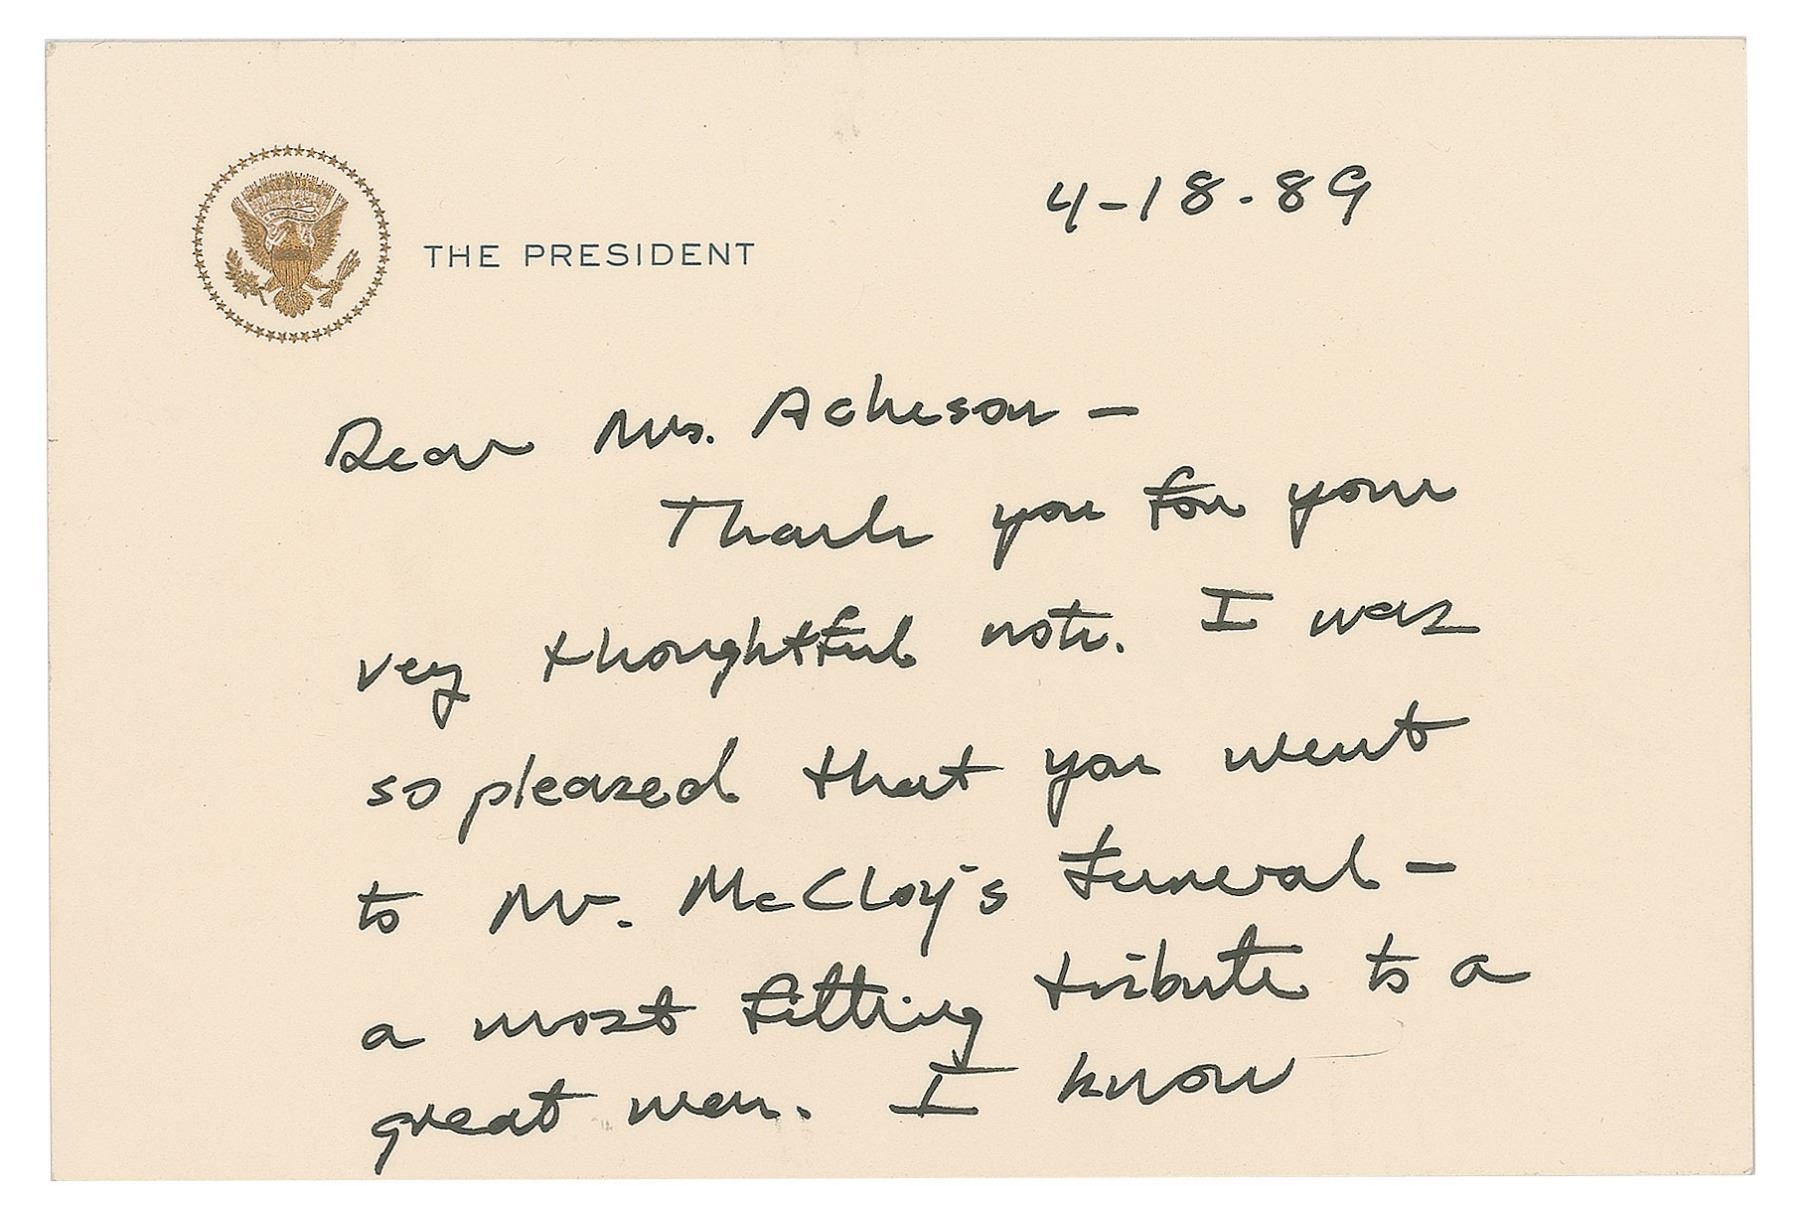 4-18-89
THE PRESIDENT
Dear Mrs. Acheson -
Thank you for your
very thoughtful note. I was
so pleased that you went
to Mr. McCloy's funeral -
a most fitting tribute to a
great man. I know